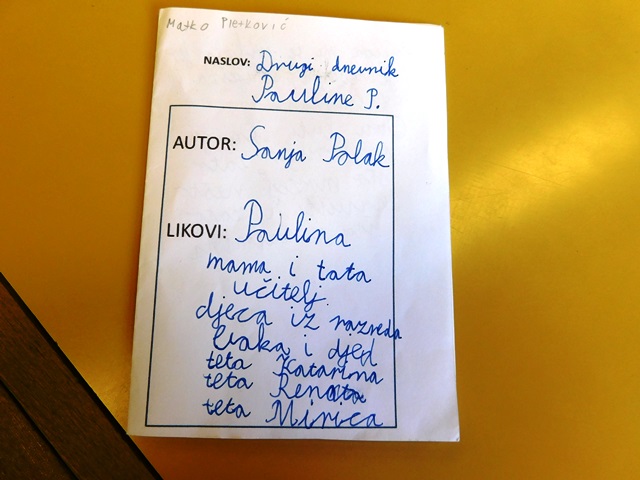 Matko Pletković
NASLOV: Drugi dnevnik
Pauline P.
AUTOR: Sanja Polak
LIKOVI: Paulina
mama i tata
učitelj
djeca iz razreda
baka i djed
teta Katarina
teta Renata
teta Mirica